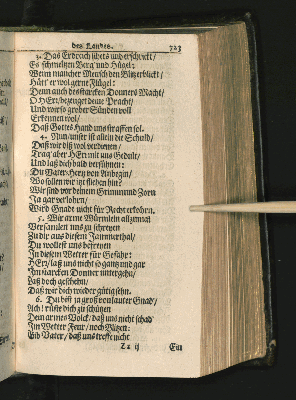 des Landes. 723
3. Das Erdreich sihets und erschrickt/
Es schmeltzen Berg und Hügel:
Wenn mancher Mensch den Blitz erblickt/
Hätt' er wol gerne Flügel:
Denn auch des starcken Donners Macht/
O HErr/ bezeuget deine Pracht/
Und wir so grober Sünden voll
Erkennen wol/
Daß Gottes Hand uns straffen sol.
4. Nun/ unser ist allein die Schuld/
Daß wir diß wol verdienen/
Trag' aber HErr mit uns Gedult/
Und laß dich bald versühnen:
Du Vater-Hertz von Anbegin/
Wo sollen wir ist fliehen hin?
Wir sind vor deinem Grimm und Zorn
Ja gar verlohrn/
Wird Gnade nicht für Recht erkohrn.
5. Wir arme Würmlein allzumal
Versamlen uns zu schreyen
Zu dir aus diesem Jammerthal/
Du wollest uns befreyen
In diesem Wetter für Gefahr:
HErr/ laß uns nicht so gantz und gar
Im starcken Donner untergehn/
Laß doch geschehn/
Daß wir dich wieder gütig sehn.
6. Du bist ja groß von lauter Gnad/
Ach! rüste dich zu schützen
Dein armes Volck/ daß uns nicht schad'
Im Wetter Feur/ noch Blitzen:
Gib Vater/ daß uns treffe nicht
Zz ij Ein